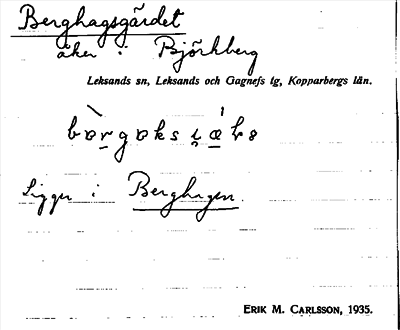 Berghagsgärdet
åker i Björkberg
Leksands sn, Leksands och Gagnefs tg, Kopparbergs län.
Ligger i Berghagen.
ERIK M. CARLSSON, 1935.